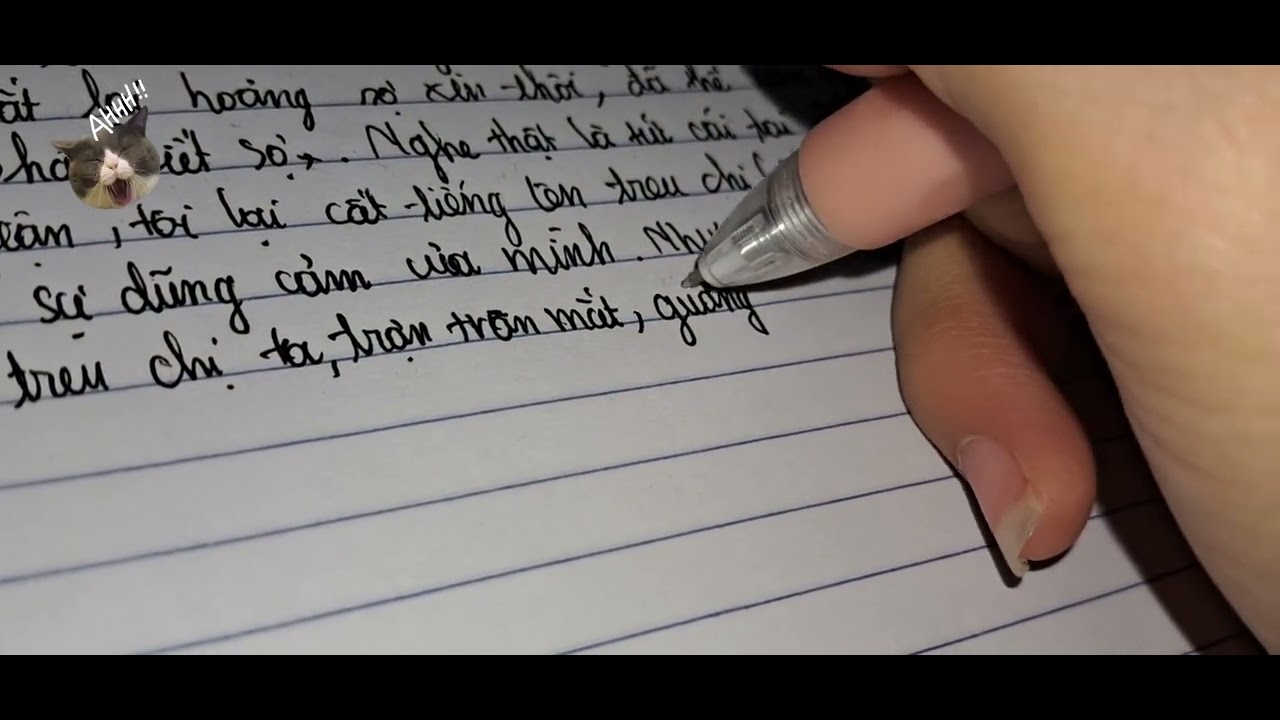 AHHH!!
hoảng sợ xin thôi, đã thế
sợ. Nghe thật là tức cái tai
, tôi lại cất tiếng lên trêu chị
sự dũng cảm của mình. Như
trêu chị ta, trợn tròn mắt, quang